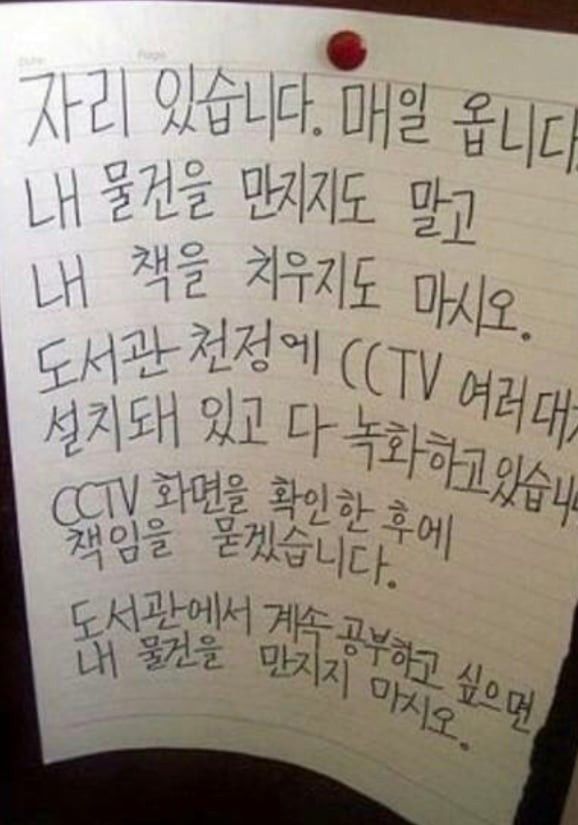 Date Page
자리 있습니다. 매일 옵니다.
내 물건을 만지지도 말고
내 책을 치우지도 마시오.
도서관 천정에 CCTV 여러대가
설치돼 있고 다 녹화하고있습니
CCTV 화면을 확인한 후에
책임을 묻겠습니다.
도서관에서 계속 공부하고 싶으면
내 물건을 만지지 마시오.